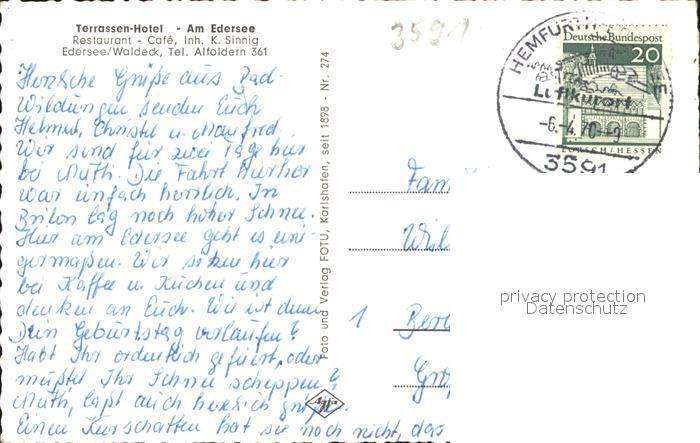 Terrassen-Hotel - Am Edersee
Restaurant - Café, Inh. K. Sinnig
Edersee/Waldeck, Tel. Affoldern 361
Herzliche Grüße aus Bad-
Wildungen senden Euch
Helmut, Christel u. Manfred.
Wir sind für zwei Tage hier
bei Mutti. Die Fahrt hierher
war einfach herrlich. In
Brilon lag noch hoher Schnee.
Hier am Edersee geht es eini-
germaßen. Wir sitzen hier
bei Kaffee u. Kuchen und
denken an Euch. Wie ist denn
Dein Geburtstag verlaufen?
Habt Ihr ordentlich gefeiert, oder
mußtet Ihr Schnee scheppen?
Mutti, läßt auch herzlich grüßen.
Einen Kurschatten hat sie noch nicht, das
Foto und Verlag FOTU, Karlshafen, seit 1898 - Nr. 274
3591
HEMFURTH
Luftkurort
-6.-4.70-9
3591
Deutsche Bundespost
20
LORSCH/HESSEN
Fam
Wil
1 Ber
privacy protection
Datenschutz